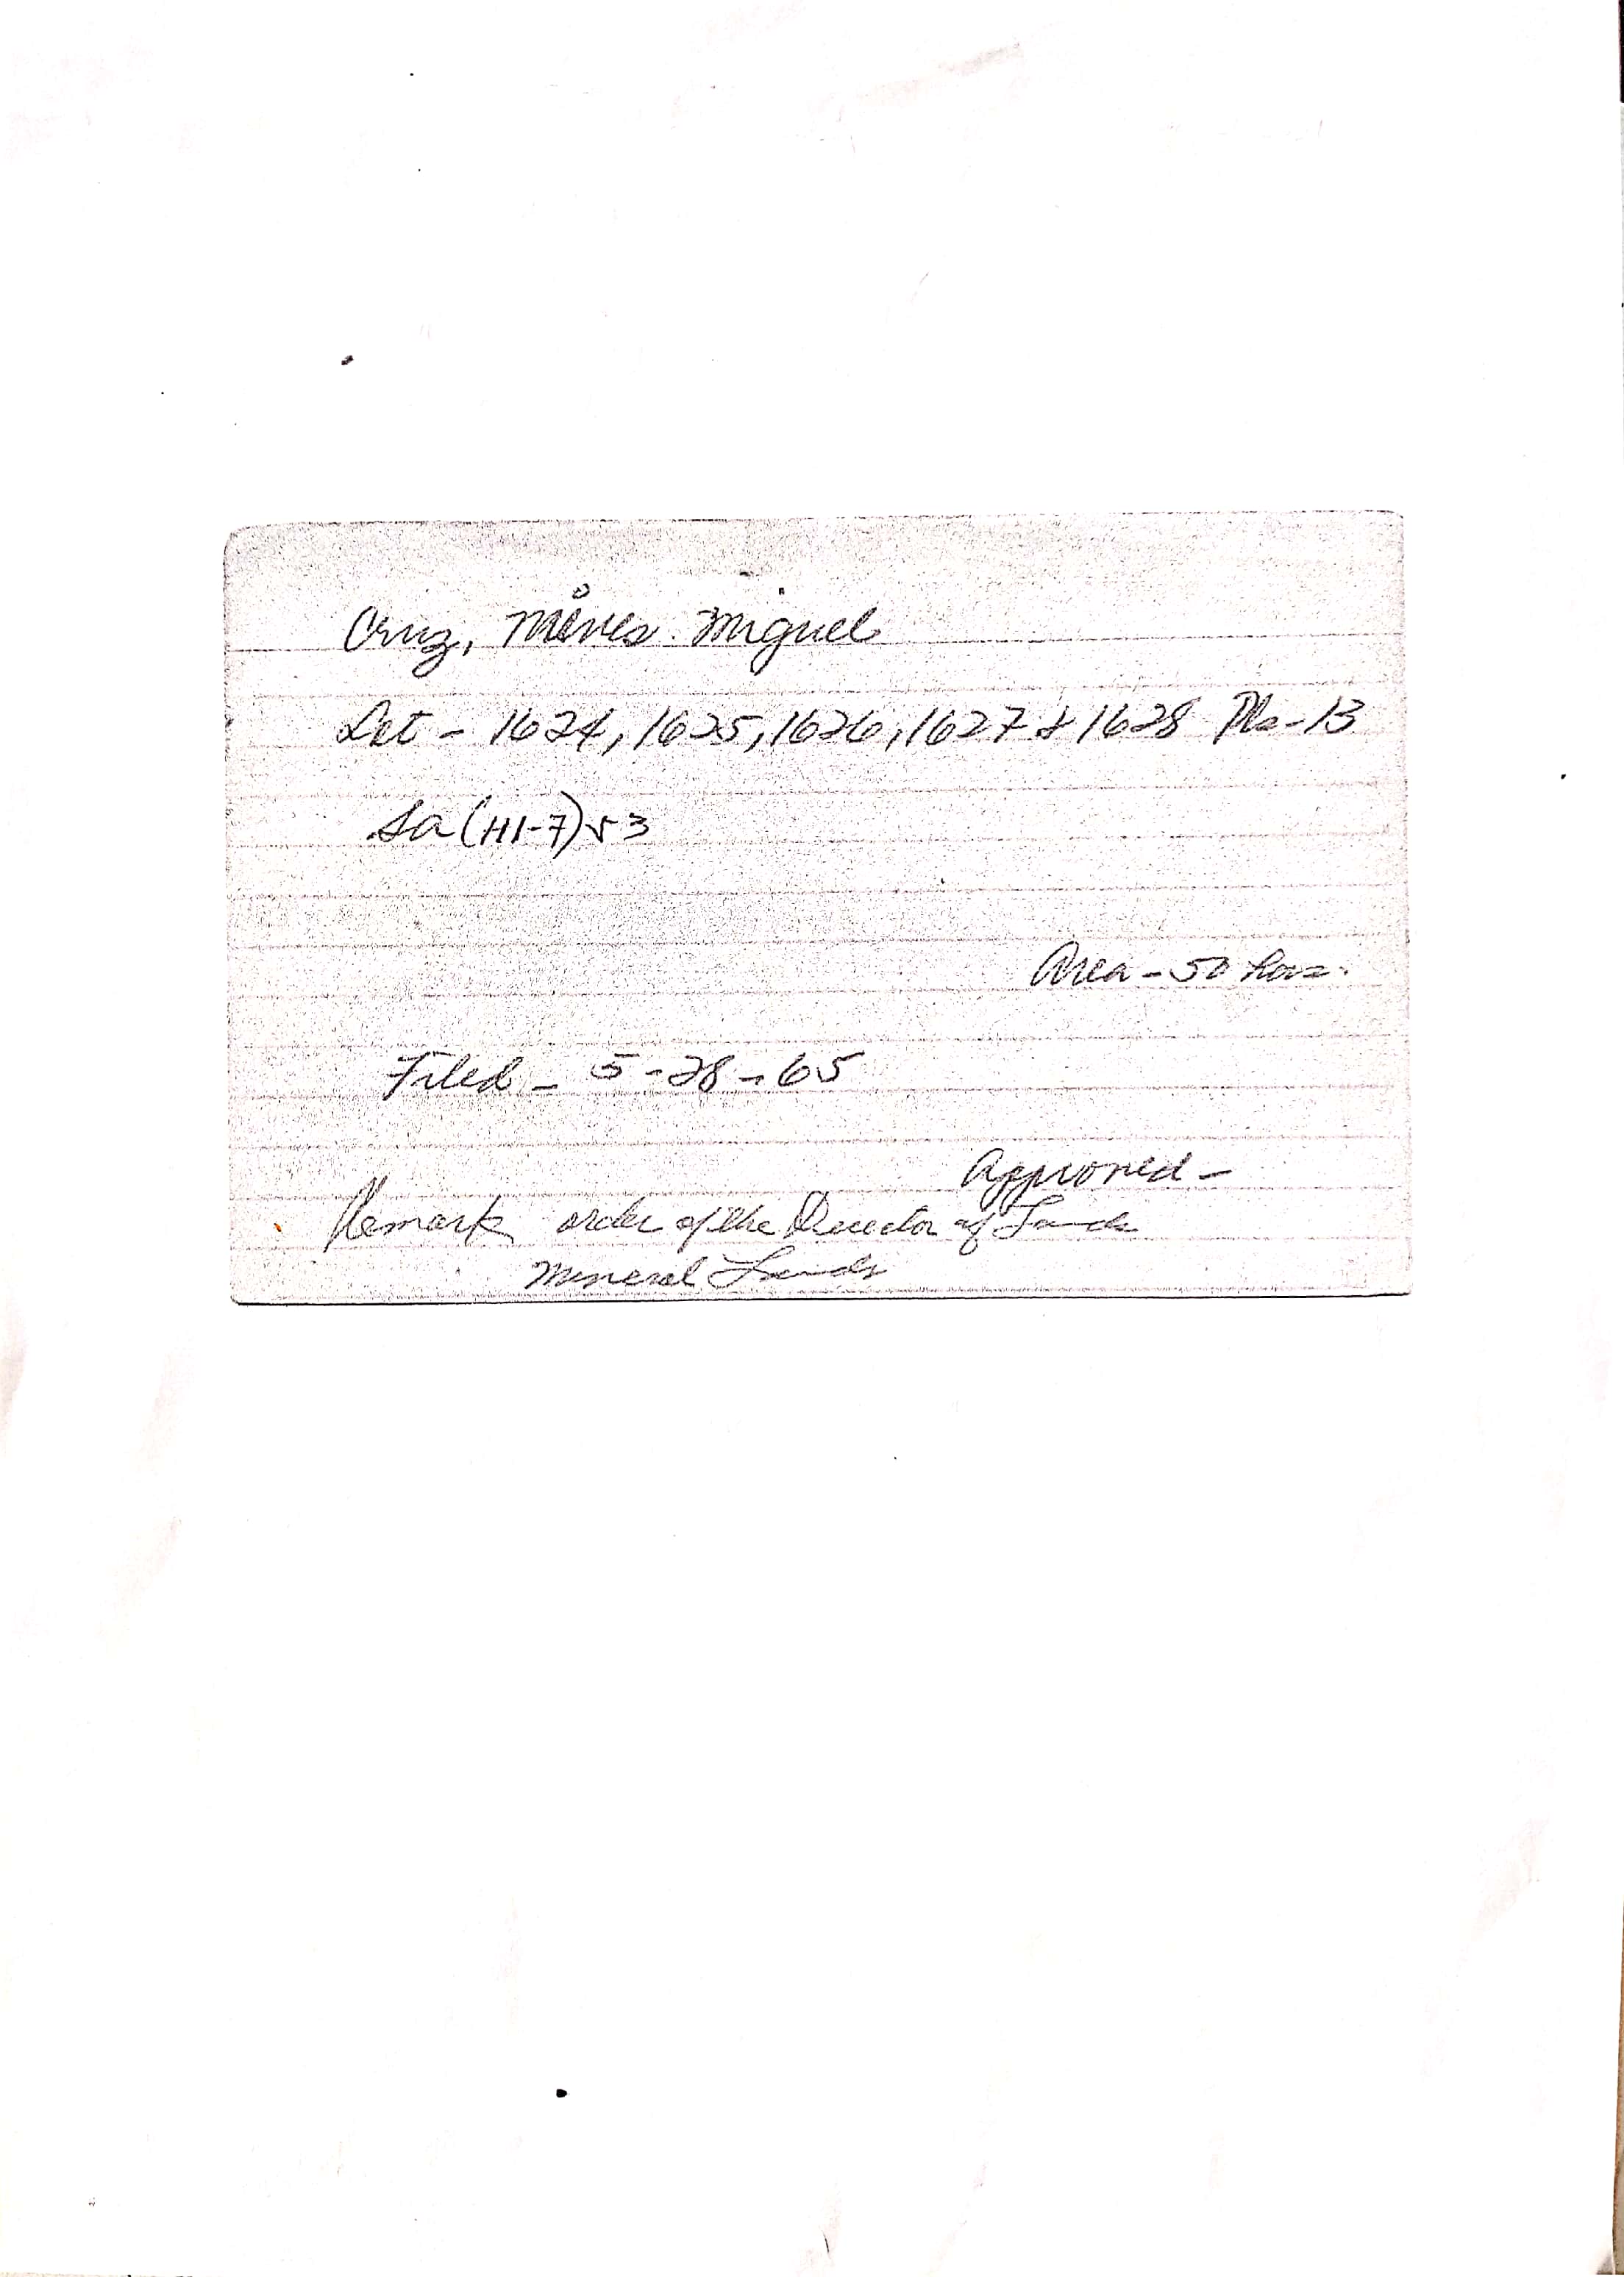 Cruz, Miguel
Lot - 1624, 1625, 1626, 1627 & 1628 Pls-13
Sa (III-7) 53
Area - 50 has.
Filed - 5-28-65
Approved -
Remark order of the Director of Lands
Mineral Lands